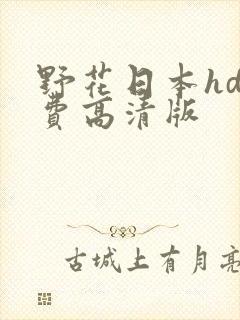 野花日本hd
費高清版
古城上有月亮